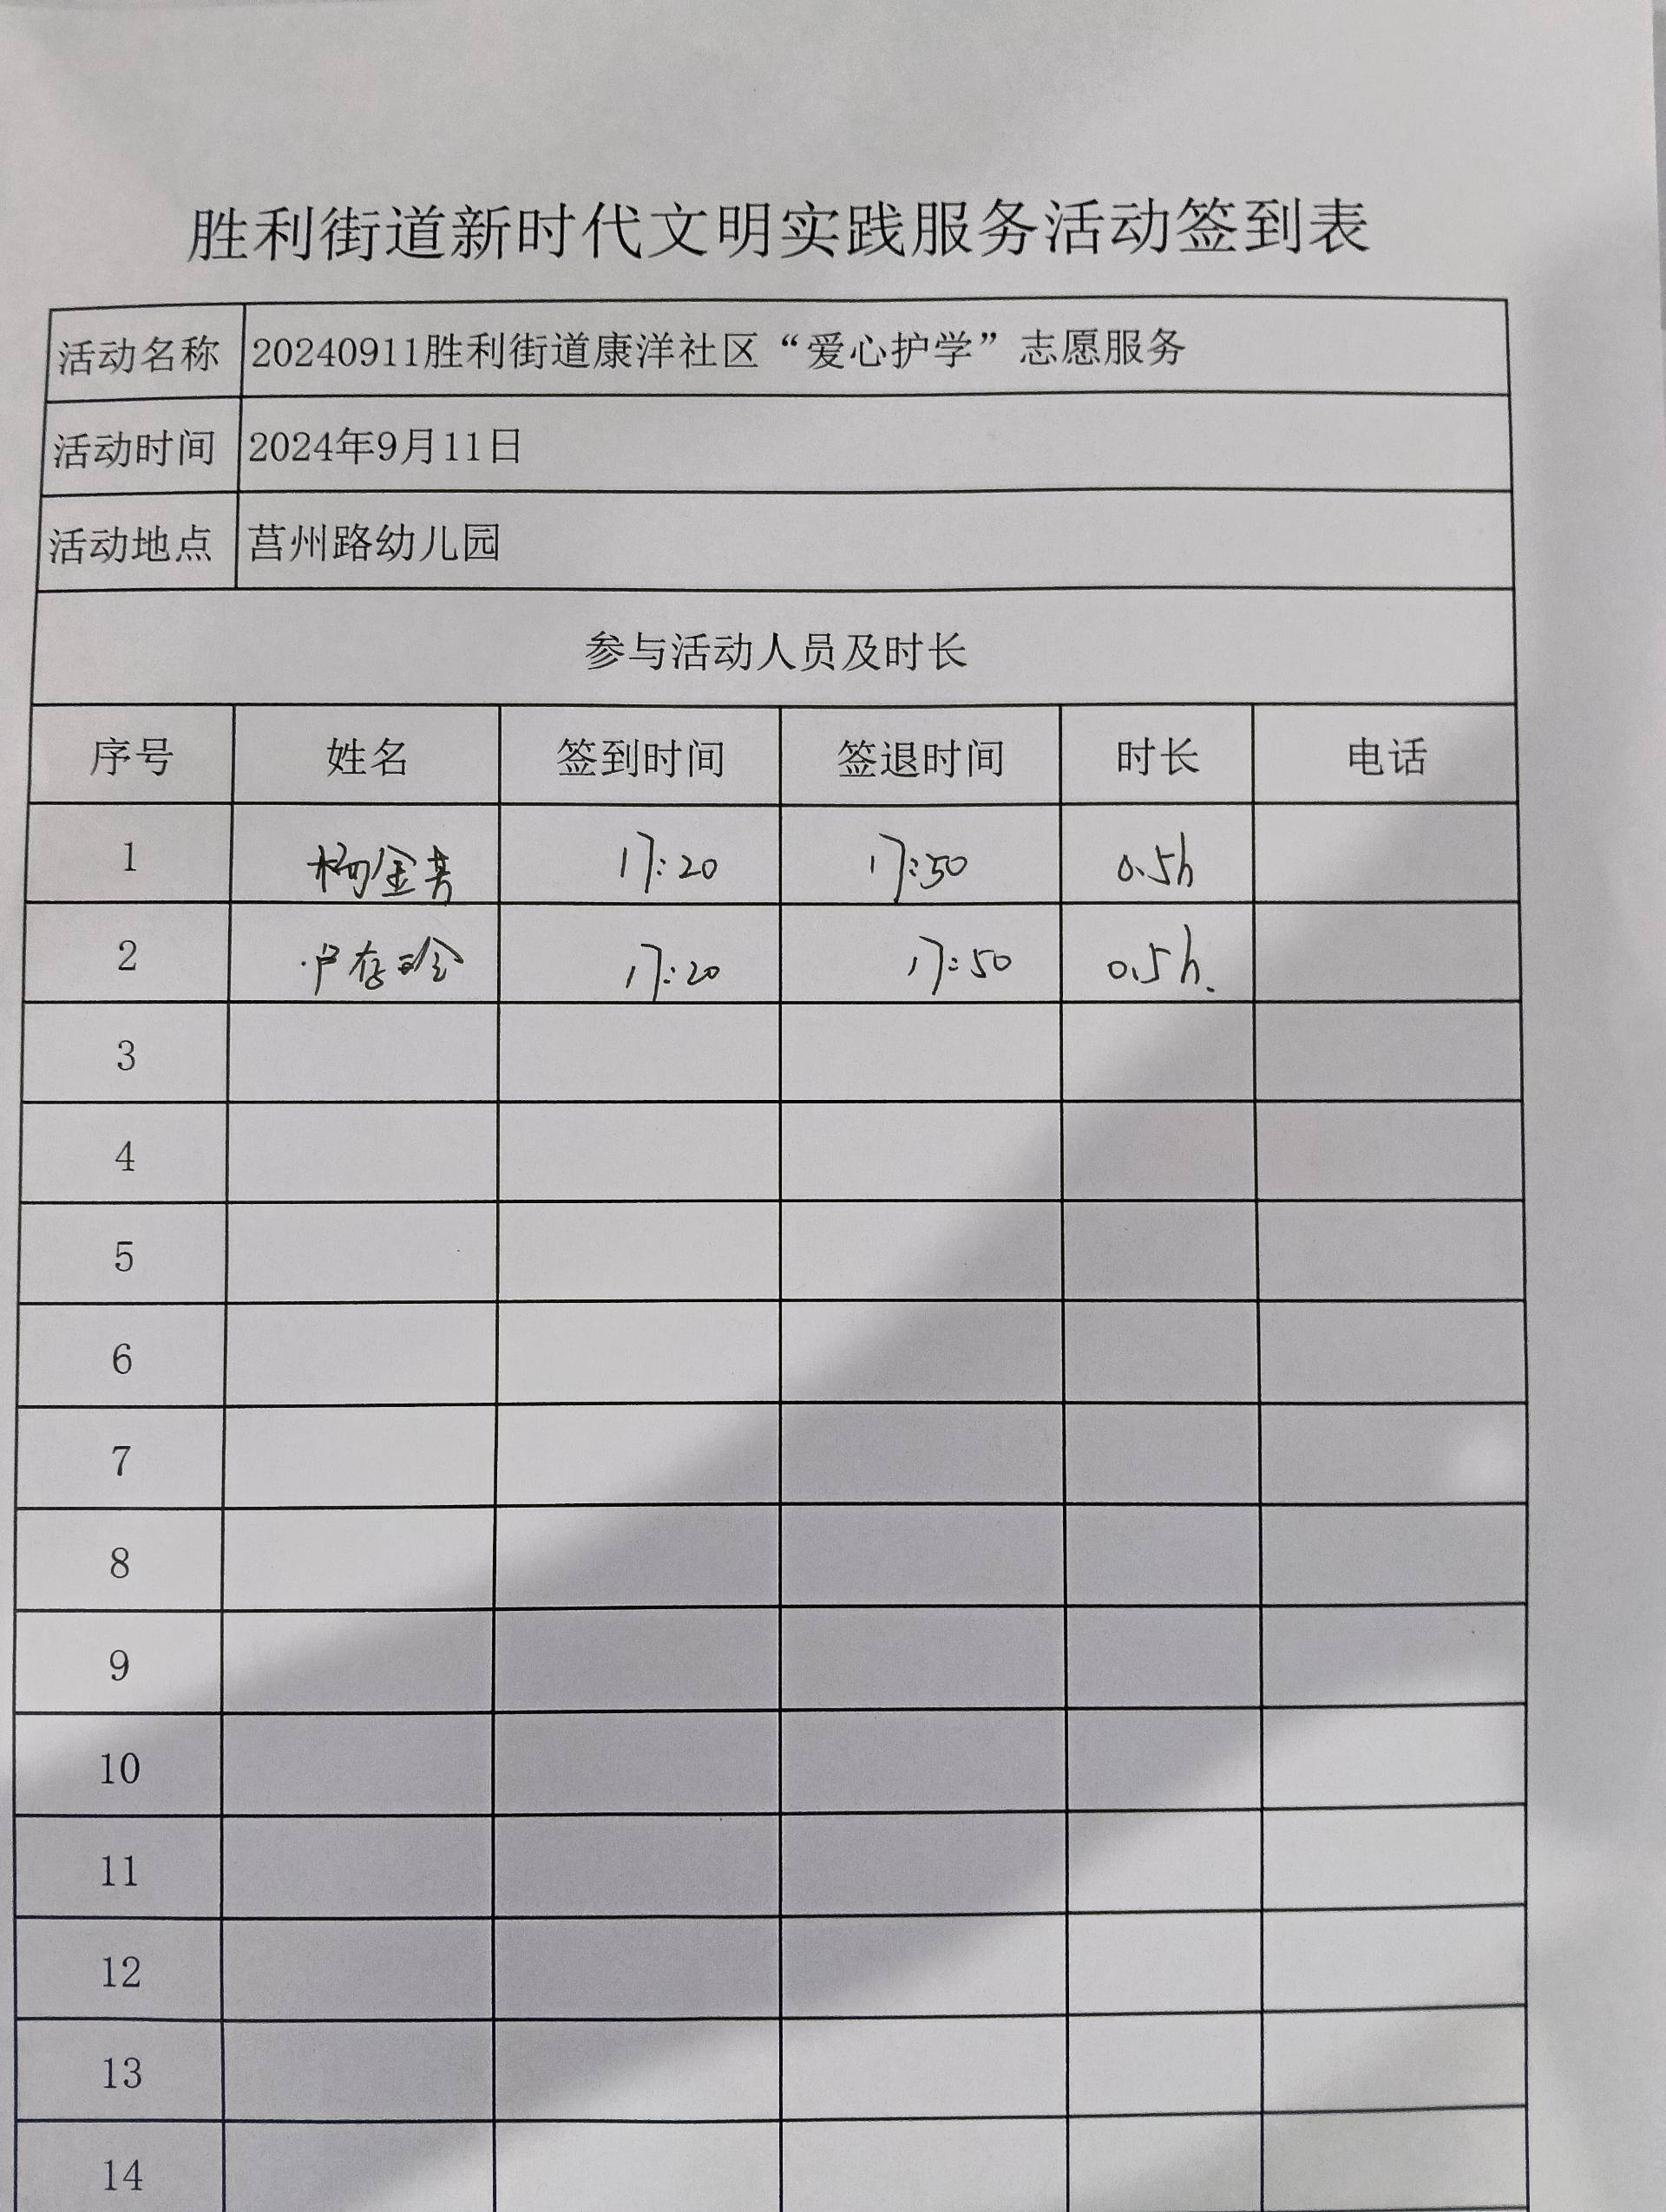 胜利街道新时代文明实践服务活动签到表
活动名称 20240911胜利街道康洋社区“爱心护学”志愿服务
活动时间 2024年9月11日
活动地点 莒州路幼儿园
参与活动人员及时长
序号 姓名 签到时间 签退时间 时长 电话
1 杨金 17:20 17:50 0.5h
2 卢存 17:20 17:50 0.5h.
3
4
5
6
7
8
9
10
11
12
13
14